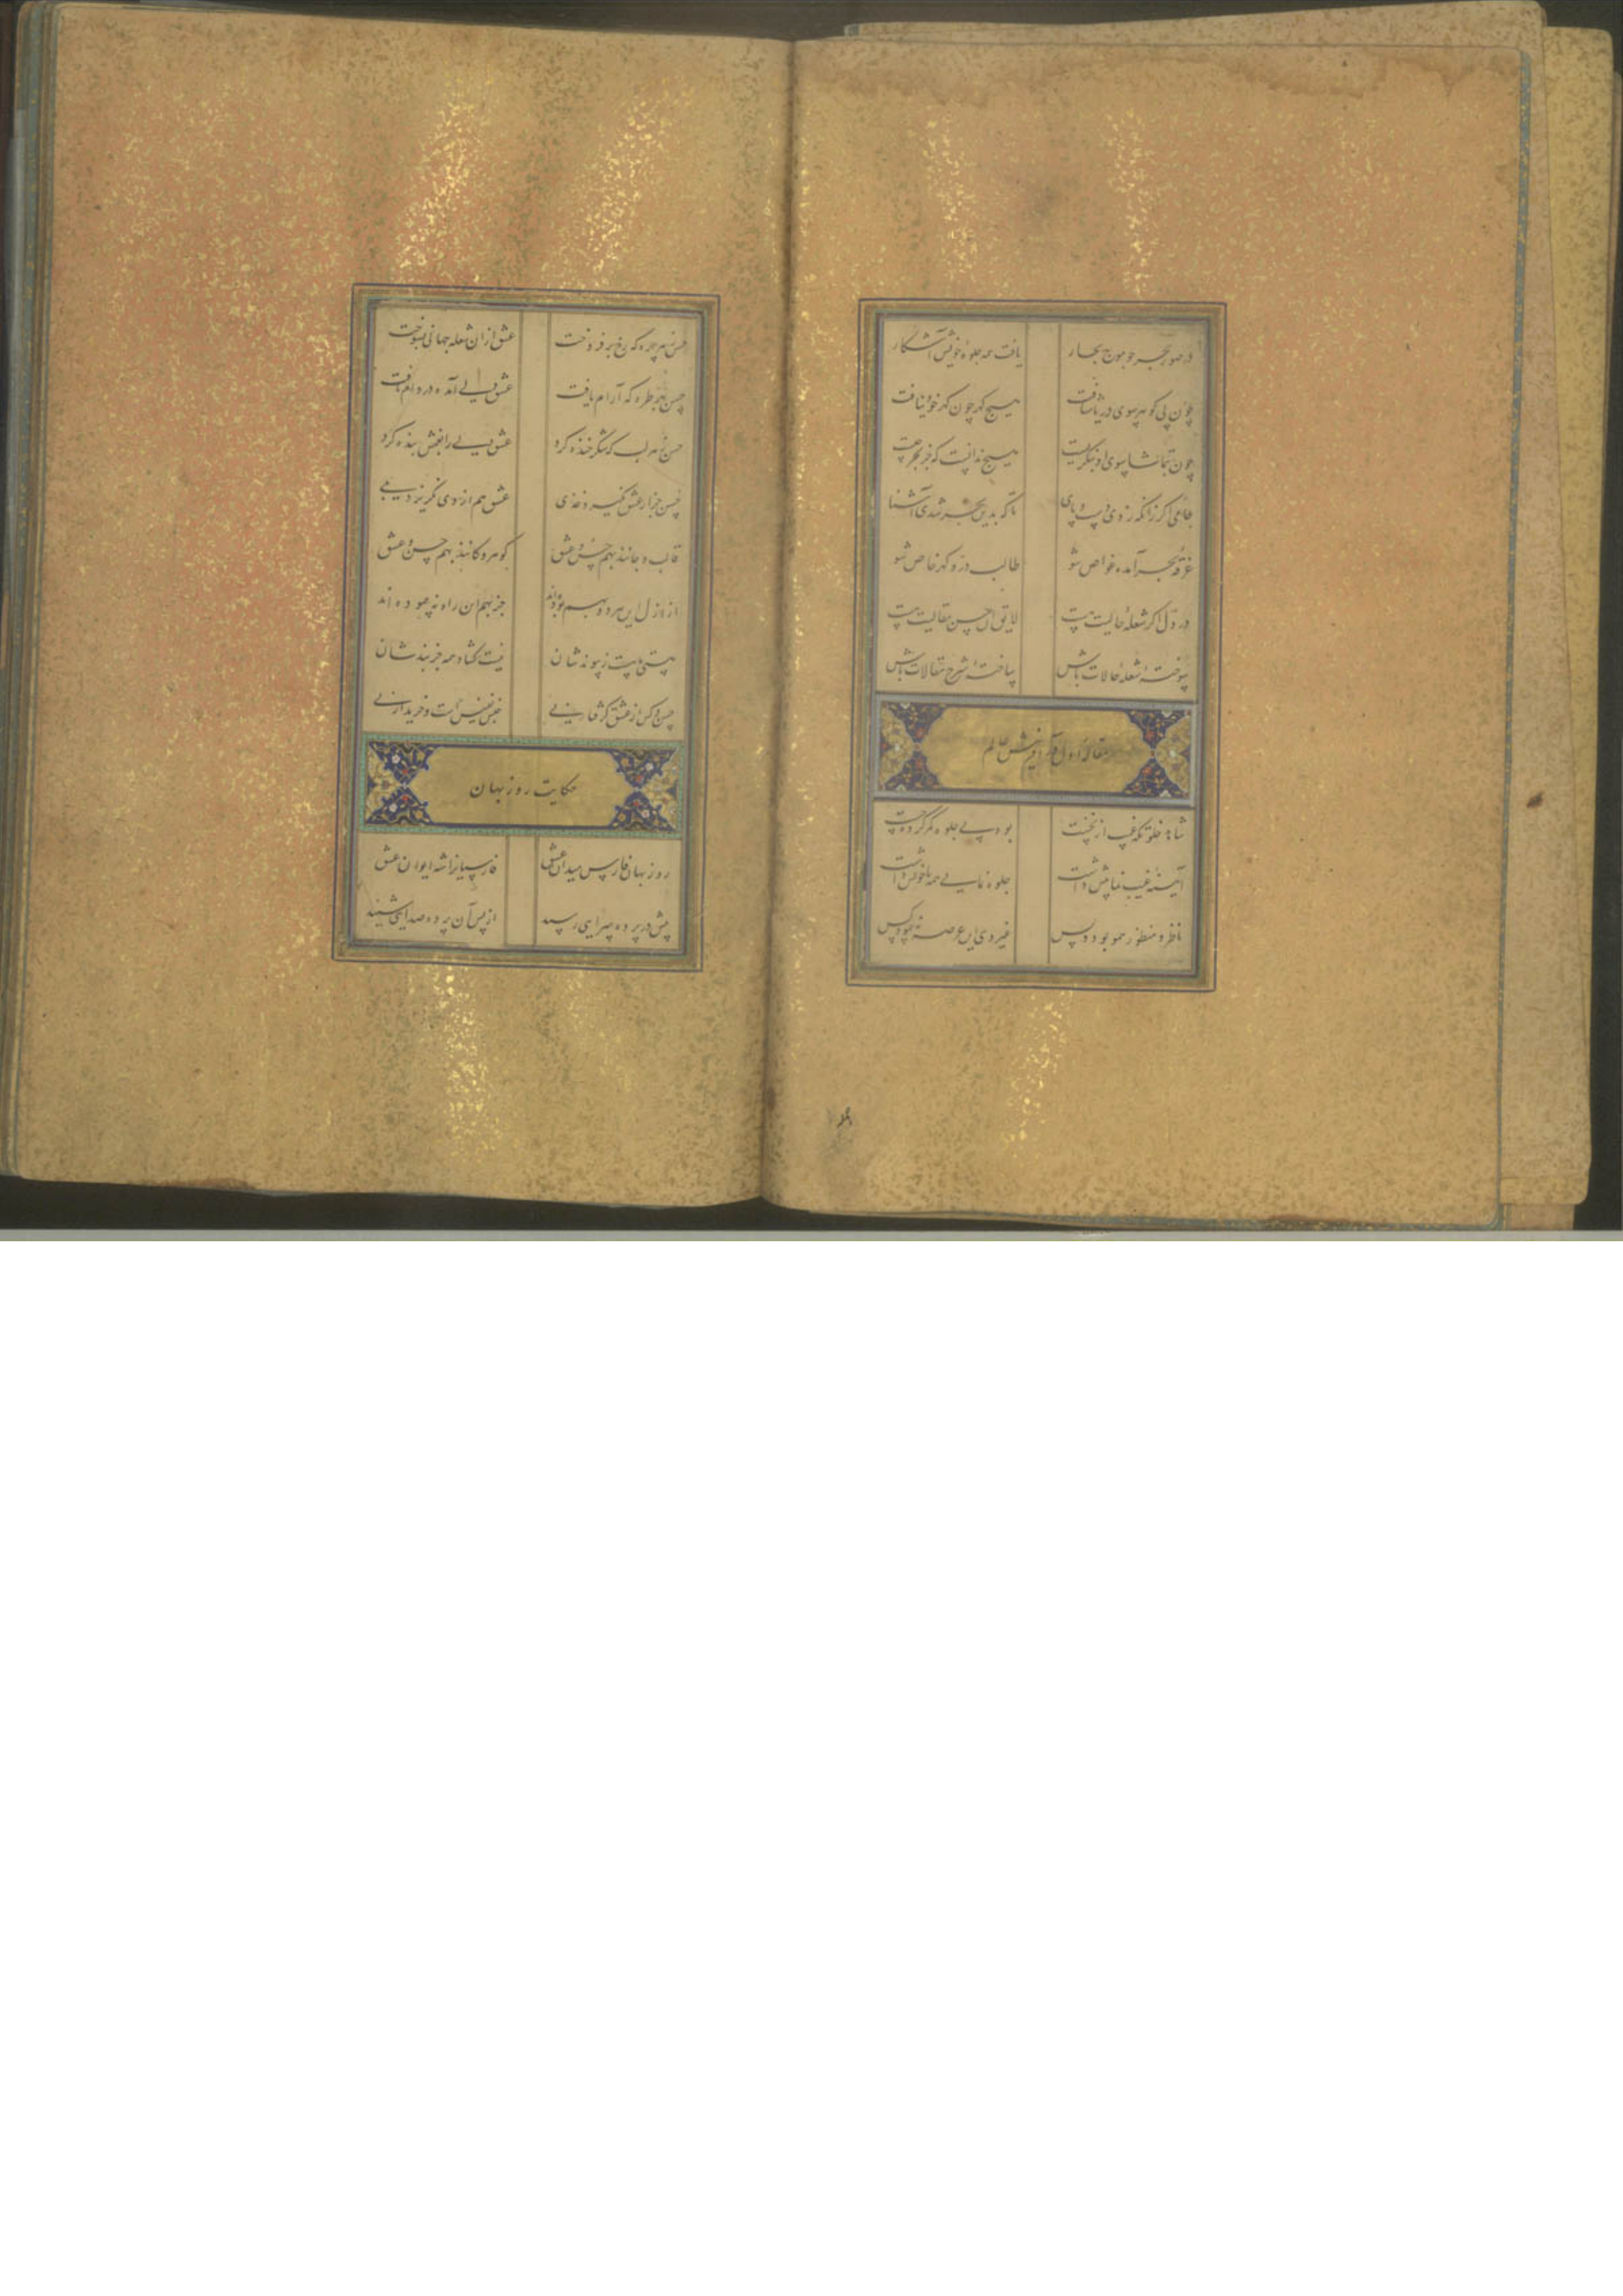 در صور بحر چو موج بحار یافت همه جلوه خویش آشکار
چون پی گوهر بسوی دریا شتافت هیچ گهر چون گهر خود نیافت
چون بتماشا بسوی او بنگریست هیچ ندانست که جز بحر چیست
جامی اگر زانکه زدی دست و پای تا که بدین بحر شدی آشنا
غرقه بحر آمده غواص شو طالب در و گهر خاص شو
در دل اگر شعله حالیت هست لایق آن حسن مقالیت هست
سوخته شعله حالات باش ساخته شرح مقالات باش
مقاله اول در آفرینش عالم
شاهد خلوتگه غیب از نخست بود پی جلوه کمر کرده چست
آینه غیب نما پیش داشت جلوه نمایی همه با خویش داشت
ناظر و منظور همو بود و بس غیر وی این عرصه نپیمود کس
حسن بهر چهره که رخ برفروخت عشق از آن شعله جهانی بسوخت
حسن بهر طره که آرام یافت عشق دلی آمده در دام یافت
حسن ز هر لب که شکر خنده کرد عشق دلی را بغمش بنده کرد
حسن جز از عشق نگیرد غذی عشق هم از وی نگریزد دمی
قالب و جانند بهم حسن و عشق گوهر و کانند بهم حسن و عشق
از ازل این هر دو بهم بوده اند جز بهم این راه نپیموده اند
هستی ما هست ز پیوندشان نیست گشاد همه جز بندشان
حسن که از عشق گرفتار نی جنس نفیس است و خریدار نی
حکایت روزبهان
روزبهان فارس میدان عشق فارسیانرا شه ایوان عشق
پیش در پرده سرایی رسید از پس آن پرده صدایی شنید